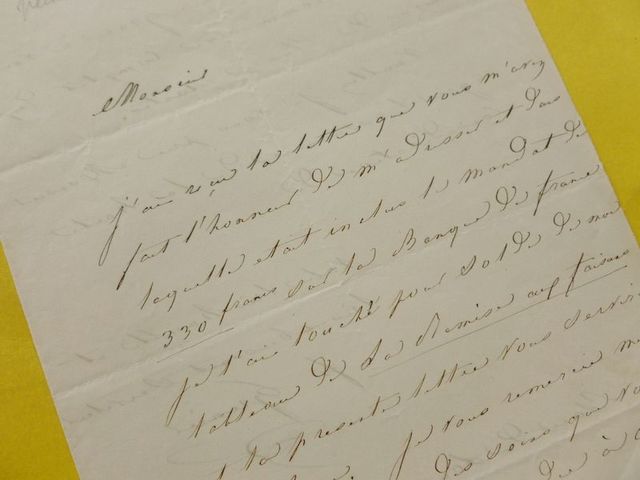 Monsieur
j'ai reçu la lettre que vous m'avez
fait l'honneur de m'adresser et dans
laquelle etait inclus le mandat de
330 francs sur la Banque de france
je l'ai touché pour solde de mon
tableau de La Remise aux faisans
la presente lettre vous servir
je vous remercie
des soins que vo